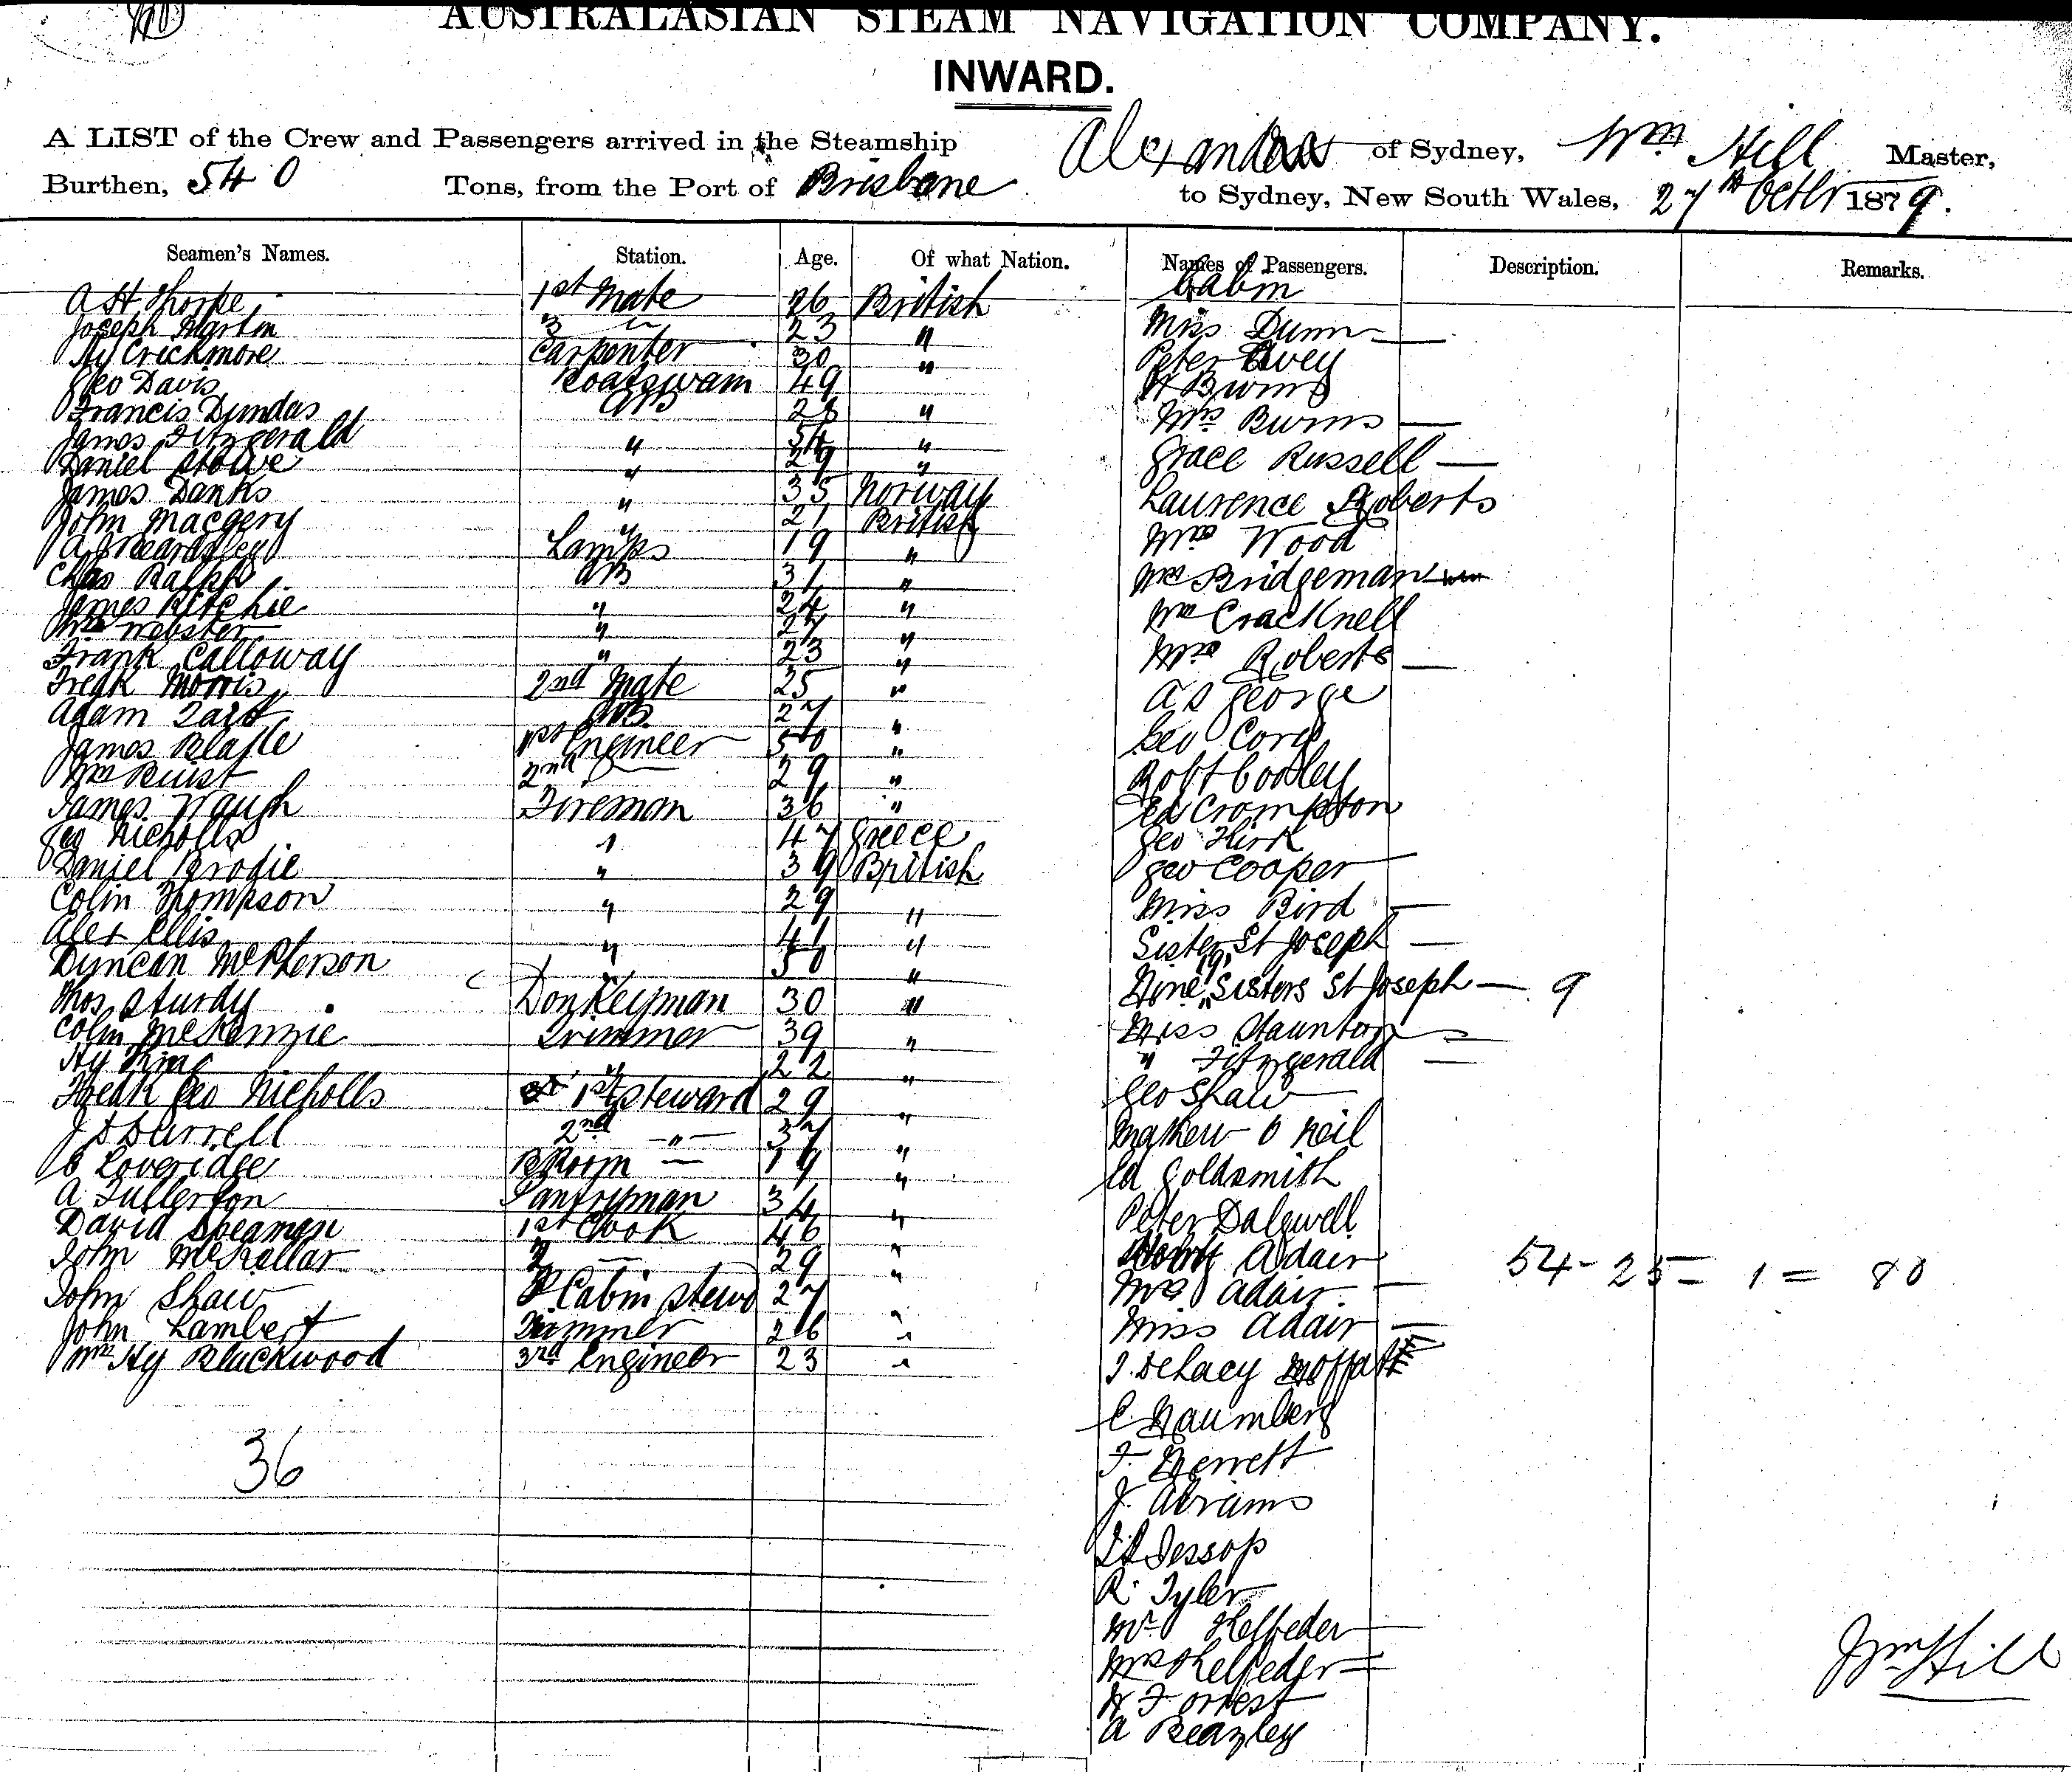 AUSTRALASIAN STEAM NAVIGATION COMPANY.
INWARD.
A LIST of the Crew and Passengers arrived in the Steamship Alexandra of Sydney, Wm Hill Master,
Burthen, 540 Tons, from the Port of Brisbane to Sydney, New South Wales, 27th Octbr 1879.
Seamen's Names. Station. Age. Of what Nation. Names of Passengers. Description. Remarks.
A H Thorpe 1st Mate 26 British Cabin
Joseph Martin 3 " 23 " Miss Dunn —
Hy Crickmore Carpenter 30 " Peter Ivey
Geo Davis Boatswain 49 H Burns
Francis Dundas AB 28 " Mrs Burns —
James Fitzgerald " 34 " Grace Russell —
Daniel Stowe " 29 " Laurence Roberts
James Danks " 35 Norway Mrs Wood
John Macgery " 21 British Mrs Bridgeman
Lamps 19 " Wm Cracknell
Chas Ralph AB 31 " Mrs Roberts —
James Ritchie " 24 " A S George
Wm Webster " 27 " Geo Cory
Frank Calloway " 23 " Robt Cooley
Fredk Morris 2nd Mate 25 " Ed Crompton
Adam AB 27 " Geo Kirk
James Blakle 1st Engineer 50 " Geo Cooper
Wm Buist 2nd — 29 " Miss Bird —
James Waugh Fireman 36 " Sister St Joseph —
Geo Nicholls " 47 Greece Nine "9" Sisters St Joseph — 9
Daniel Brodie " 39 British Miss Staunton —
Colin Thompson " 29 " " Fitzgerald —
Alex Ellis " 41 " Geo Shaw
Duncan McPherson " 50 " Mathew O Neil
Thos Sturdy Donkeyman 30 " Ed Goldsmith
Colin McKenzie Trimmer 39 " Peter Dalgwell
Hy King " 22 Adair
Fredk Geo Nicholls 1st Steward 29 " Mrs Adair —
J D Durrell 2nd — " — 37 " Miss Adair —
C Loveridge B Room — 19 " J. DeLacy Moffatt
A Fullerton Pantryman 34 C. Naumberg
David Speaman 1st Cook 46 " F. Berrett
John McKellar 2 — 29 " J. Abrams
John Shaw F Cabin Stewd 27 " Jessop
John Lambert Trimmer 26 " R. Tyler
Wm Hy Blackwood 3rd Engineer 23 " Mr Helfeder
36 Mrs Helfeder —
H Forrest
A Beazley
54 - 25 - 1 = 80
Wm Hill